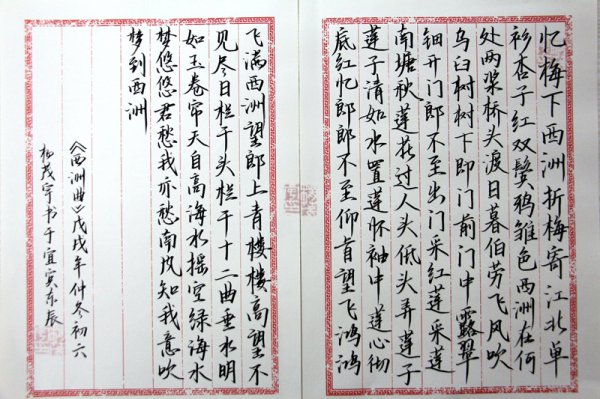 忆梅下西洲折梅寄江北单
衫杏子红双鬓鸦雏色西洲在何
处两桨桥头渡日暮伯劳飞风吹
乌臼树树下即门前门中露翠
钿开门郎不至出门采红莲采莲
南塘秋莲花过人头低头弄莲子
莲子清如水置莲怀袖中莲心彻
底红忆郎郎不至仰首望飞鸿鸿
飞满西洲望郎上青楼楼高望不
见尽日栏干头栏干十二曲垂手明
如玉卷帘天自高海水摇空绿海水
梦悠悠君愁我亦愁南风知我意吹
梦到西洲
《西洲曲》戊戌年仲冬初六
杨茂宇书于宜宾东辰